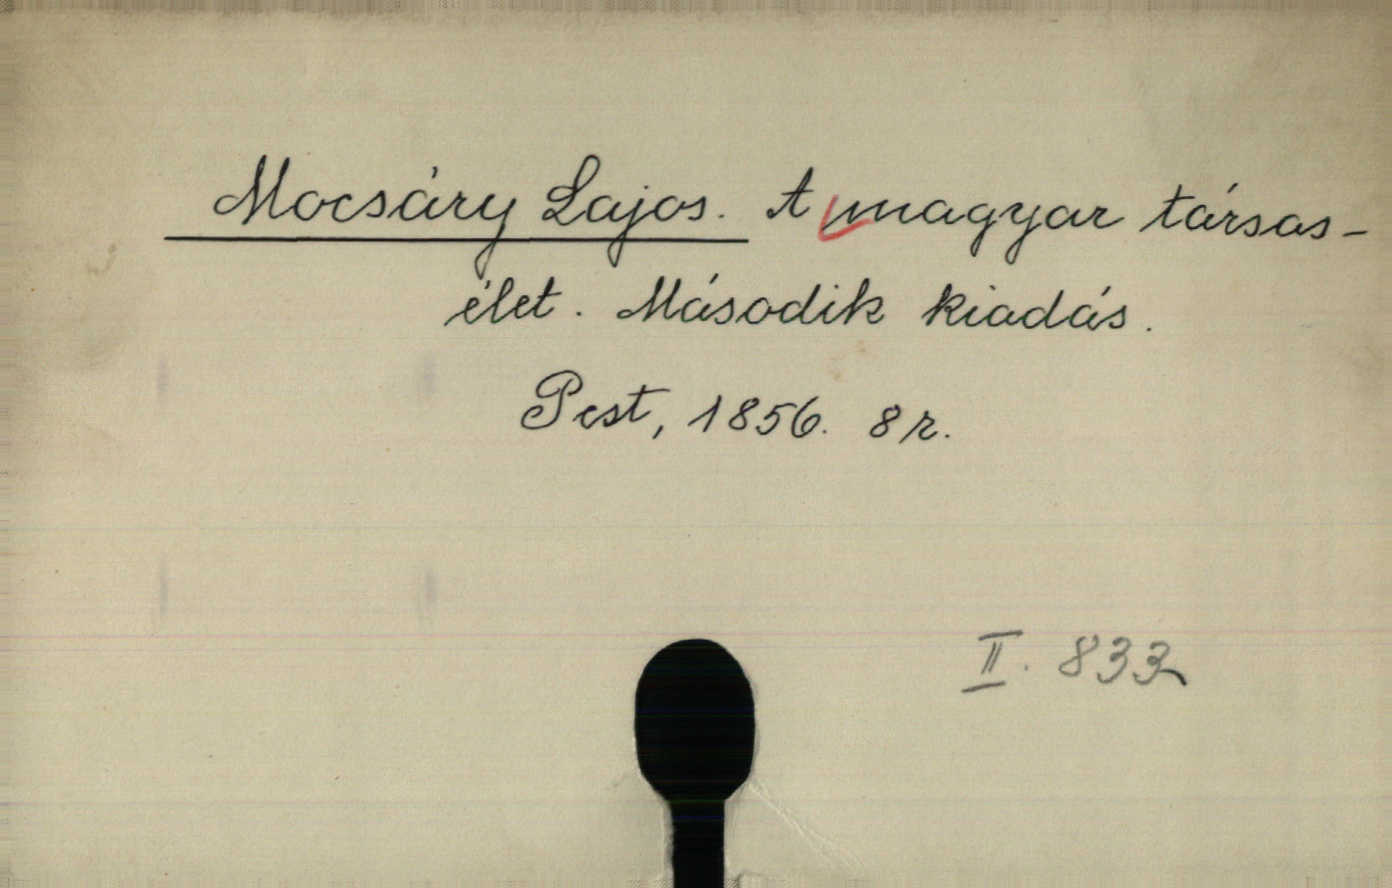 Mocsáry Lajos. A magyar társas-
élet. Második kiadás.
Pest, 1856. 8r.
II. 833